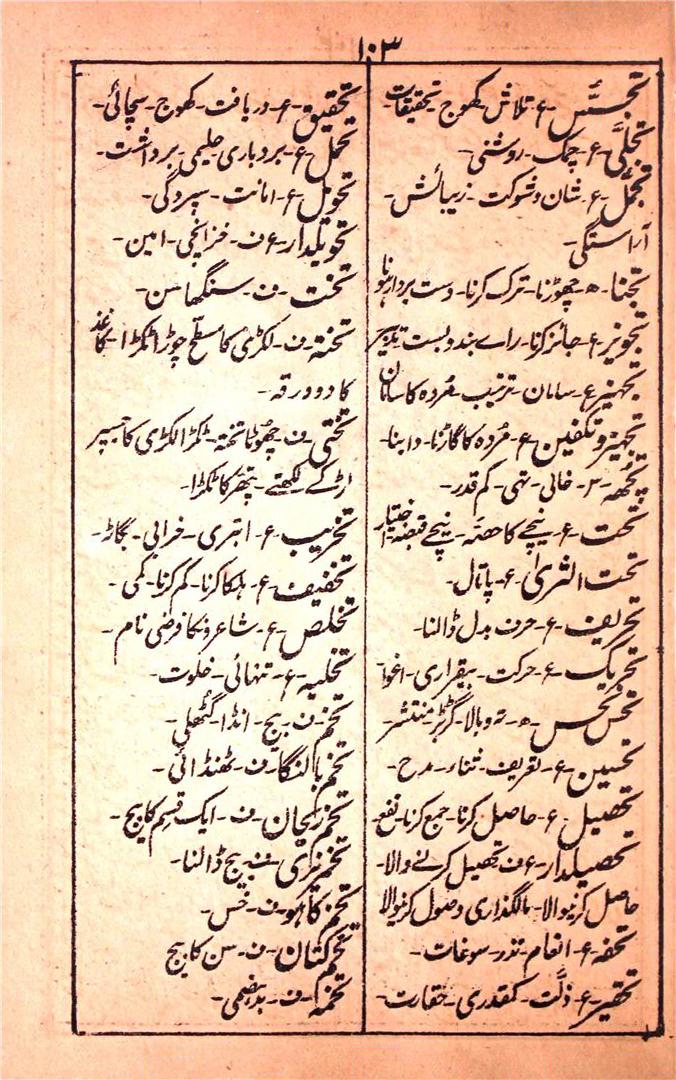 ۱۰۳
تجسّس - ع - تلاش کھوج تحقیقات -
تجلّی - ع - چمک - روشنی -
تجمّل - ع - شان و شوکت - زیبائش -
آراستگی -
تجنا - ھ - چھوڑنا - ترک کرنا - دست بردار ہونا
تجویز - ع - جائز کرنا - راے بندوبست تدبیر
تجہیز - ع - سامان - ترتیب - مُردہ کا سامان
تجہیز و تکفین - ع - مُردہ کا گاڑنا - دابنا -
خالی - تہی - کم قدر -
تحت - ع - نیچے کا حصّہ - نیچے قبضہ اختیار
تحت الثریٰ - ع - پاتال -
تحریف - ع - حرف بدل ڈالنا -
تحریک - ع - حرکت - بیقراری - اغوا
تحس نحس - ھ - تہ و بالا - گڑبڑ - منتشر -
تحسین - ع - تعریف - ثناء - مدح -
تحصیل - ع - حاصل کرنا - جمع کرنا - نفع -
تحصیلدار - ع ف - تحصیل کرنے والا -
حاصل کرنیوالا - مالگذاری وصول کرنیوالا
تحفہ - ع - انعام - نذر - سوغات -
تحقیر - ع - ذلّت - کمقدری - حقارت -
تحقیق - ع - دریافت - کھوج - سچائی -
تحمل - ع - بردباری - حلیمی - برداشت -
تحویل - ع - امانت - سپردگی -
تحویلدار - ع ف - خزانچی - امین -
تخت - ف - سنگھاسن -
تختہ - ف - لکڑی کا مسطّح چوڑا ٹکڑا - کاغذ
کا دو ورقہ -
تختی - ف - چھوٹا تختہ - ٹکڑا لکڑی کا جسپر
لڑکے لکھتے - پتھر کا ٹکڑا -
تخریب - ع - ابتری - خرابی - بگاڑ -
تخفیف - ع - ہلکا کرنا - کم کرنا - کمی -
تخلص - ع - شاعرونکا فرضی نام -
تخلیہ - ع - تنہائی - خلوت -
تخم - ف - بیج - انڈا - گٹھلی -
تخم بالنگا - ف - ٹھنڈائی -
تخم ریحان - ف - ایک قسم کا بیج -
تخم ریزی - ف - بیج ڈالنا -
تخم کاہو - ف - خس -
تخم کتان - ف - سن کا بیج
تخمہ - ف - بدہضمی -